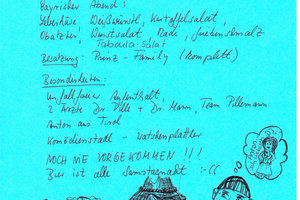 Bayrischer Abend:
Leberkäse, Weißwürstl, Kartoffelsalat,
Obatzter, Wurstsalat, Radi,
Taboula-Salat
Besatzung: Prinz-Family (komplett)
Besonderheiten:
Unfallfreier Aufenthalt,
2 Ärzte Dr. Pille + Dr. Mann, Team Pillemann
Anton aus Tirol
Komödienstadl - Watschenplattler
NOCH NIE VORGEKOMMEN !!!
Bier ist alle Samstagnacht :-((